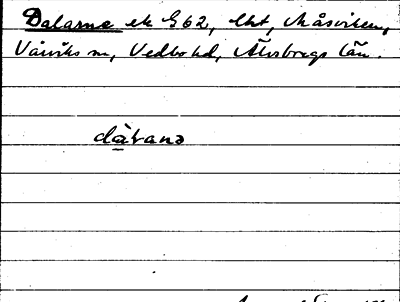 Dalarne ek E62, lht, Måsviken,
Vårviks sn, Vedbo hd, Älvsborgs län.
dàṟanə